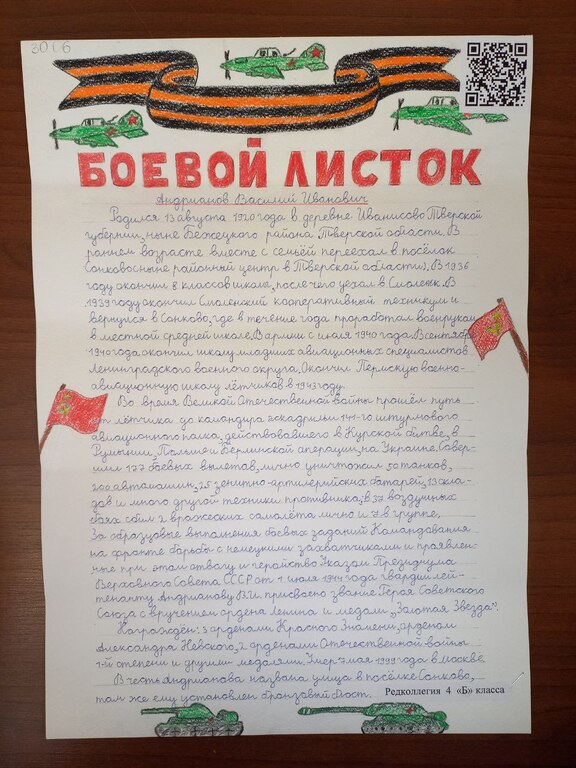 3006
БОЕВОЙ ЛИСТОК
Андрианов Василий Иванович
Родился 13 августа 1920 года в деревне Иванисово Тверской
губернии, ныне Бежецкого района Тверской области. В
раннем возрасте вместе с семьёй переехал в посёлок
Сонково(ныне районный центр в Тверской области). В 1936
году окончил 8 классов школы, после чего уехал в Смоленск. В
1939 году окончил Смоленский кооперативный техникум и
вернулся в Сонково, где в течение года проработал военруком
в местной средней школе. В армии с июля 1940 года. В сентябре
1940 года окончил школу младших авиационных специалистов
Ленинградского военного округа. Окончил Пермскую военно-
авиационную школу лётчиков в 1943 году.
Во время Великой Отечественной войны прошёл путь
от лётчика до командира эскадрильи 141-го штурмового
авиационного полка, действовавшего в Курской битве, в
Румынии, Польше и Берлинской операции, на Украине. Совер-
шил 177 боевых вылетов, лично уничтожил 50 танков,
200 автомашин, 25 зенитно-артилерийских батарей, 13 скла-
дов и много другой техники противника; в 37 воздушных
боях сбил 2 вражеских самолёта лично и 4 в группе.
За образцовые выполнения боевых заданий Командования
на фронте борьбы с немецкими захватчиками и проявлен-
ные при этом отвагу и геройство Указом Президиума
Верховного Совета СССР от 1 июля 1944 года гвардии лей-
тенанту Андрианову В.И. присвоено звание Героя Советского
Союза с вручением ордена Ленина и медали „Золотая Звезда".
Награждён: 3 орденами Красного Знамени, орденом
Александра Невского, 2 орденами Отечественной войны
1-й степени и другими медалями. Умер 7 мая 1999 года в Москве.
В честь Андрианова названа улица в посёлке Сонково,
там же ему установлен бронзовый бюст.
Редколлегия 4 «Б» класса